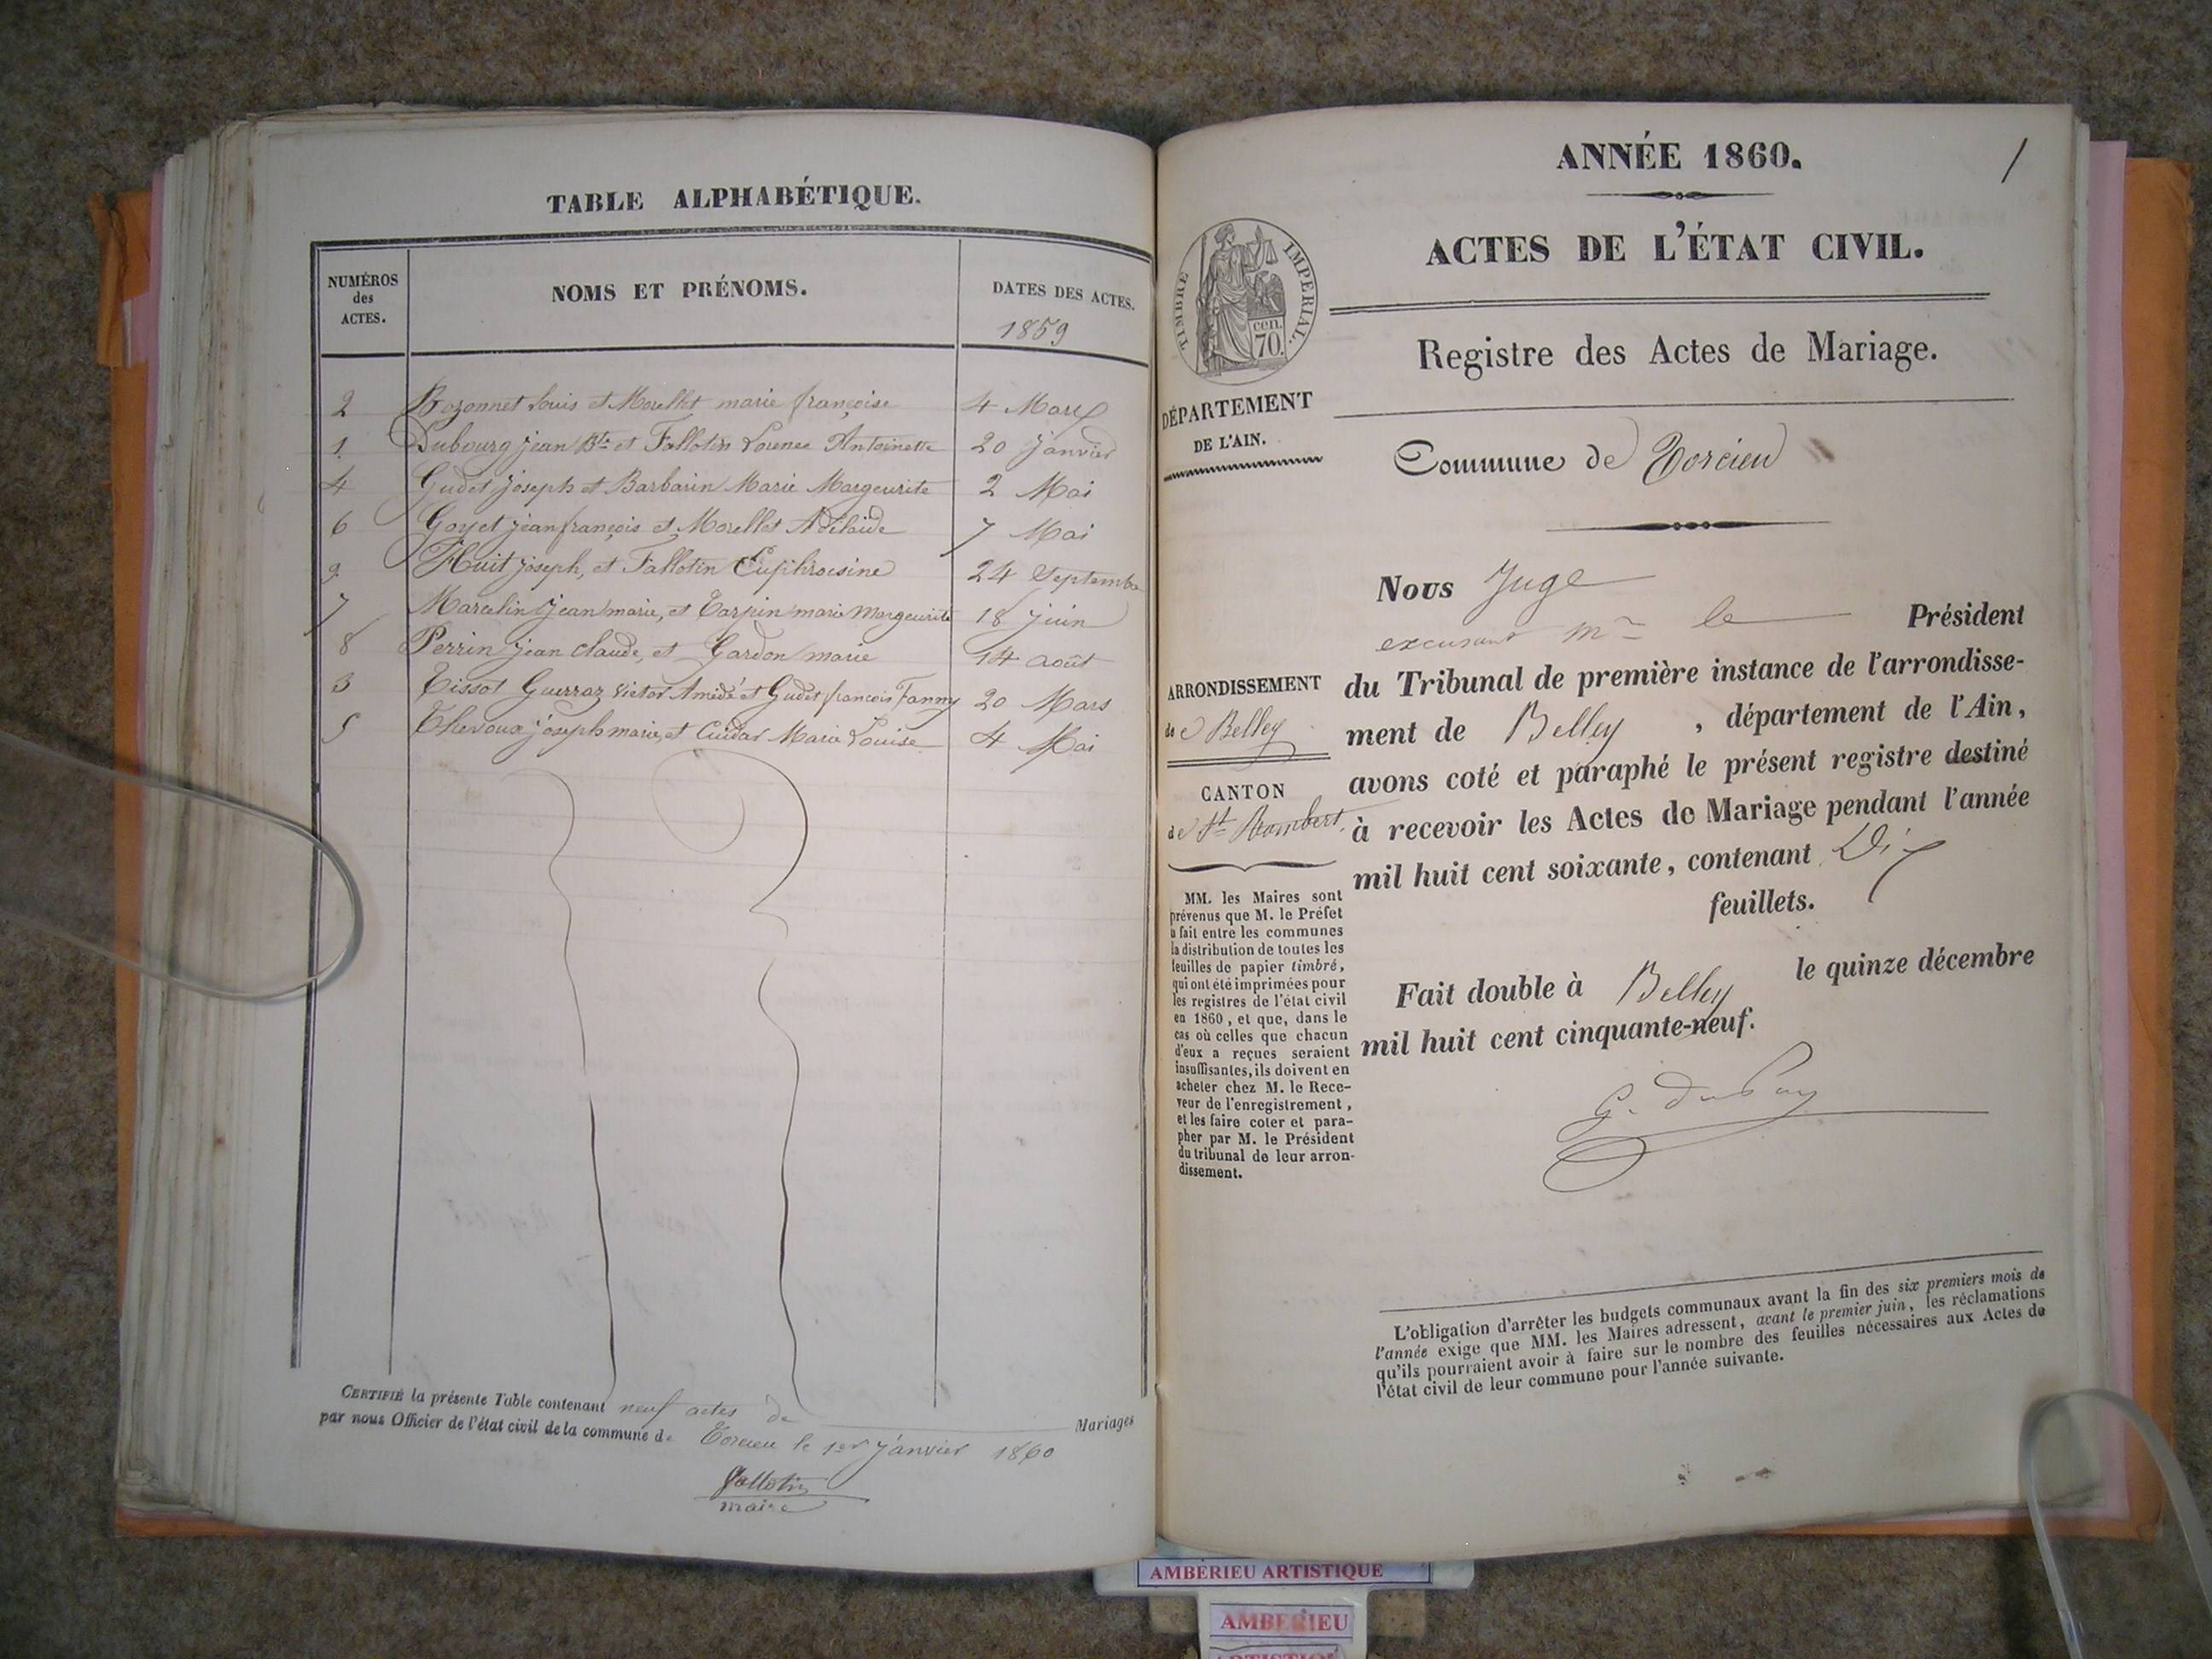 TABLE ALPHABÉTIQUE.
NUMÉROS des ACTES.
NOMS ET PRÉNOMS.
DATES DES ACTES.
1859
2 Bozonnet Louis et Morellet marie françoise 4 Mars
1. Dubourg Jean Bte et Fallotin Lorence Antoinette 20 janvier
4 Gudet joseph et Barbarin Marie Margeurite 2 Mai
6 Goyet jean françois et Morellet Adélaide 7 Mai
9 Huit joseph, et Fallotin Euphroisine 24 Septembre
7 Marcelin jean marie, et Carpin marie Margeurite 18 juin
8 Perrin jean claude, et Gardon marie 14 août
3 Tissot Guerraz Victor Amédé et Gudet françois Fanny 20 Mars
5 Thevoux joseph marie, et Cuidat Marie Louise 4 Mai
CERTIFIÉ la présente Table contenant neuf actes de Mariages
par nous Officier de l'état civil de la commune de Torcieu le 1er janvier 1860
Fallotin
maire
1
ANNÉE 1860.
ACTES DE L'ÉTAT CIVIL.
TIMBRE IMPERIAL.
cen. 70.
Registre des Actes de Mariage.
DÉPARTEMENT
DE L'AIN.
Commune de Torcieu
ARRONDISSEMENT
de Belley
CANTON
de St Rambert
MM. les Maires sont
prévenus que M. le Préfet
a fait entre les communes
la distribution de toutes les
feuilles de papier timbré,
qui ont été imprimées pour
les registres de l'état civil
en 1860, et que, dans le
cas où celles que chacun
d'eux a reçues seraient
insuffisantes, ils doivent en
acheter chez M. le Rece-
veur de l'enregistrement,
et les faire coter et para-
pher par M. le Président
du tribunal de leur arron-
dissement.
Nous Juge
excusant Mr le Président
du Tribunal de première instance de l'arrondisse-
ment de Belley, département de l'Ain,
avons coté et paraphé le présent registre destiné
à recevoir les Actes de Mariage pendant l'année
mil huit cent soixante, contenant Dix
feuillets.
Fait double à Belley le quinze décembre
mil huit cent cinquante-neuf.
L'obligation d'arrêter les budgets communaux avant la fin des six premiers mois de
l'année exige que MM. les Maires adressent, avant le premier juin, les réclamations
qu'ils pourraient avoir à faire sur le nombre des feuilles nécessaires aux Actes de
l'état civil de leur commune pour l'année suivante.
AMBERIEU ARTISTIQUE
AMBERIEU
ARTISTIQUE